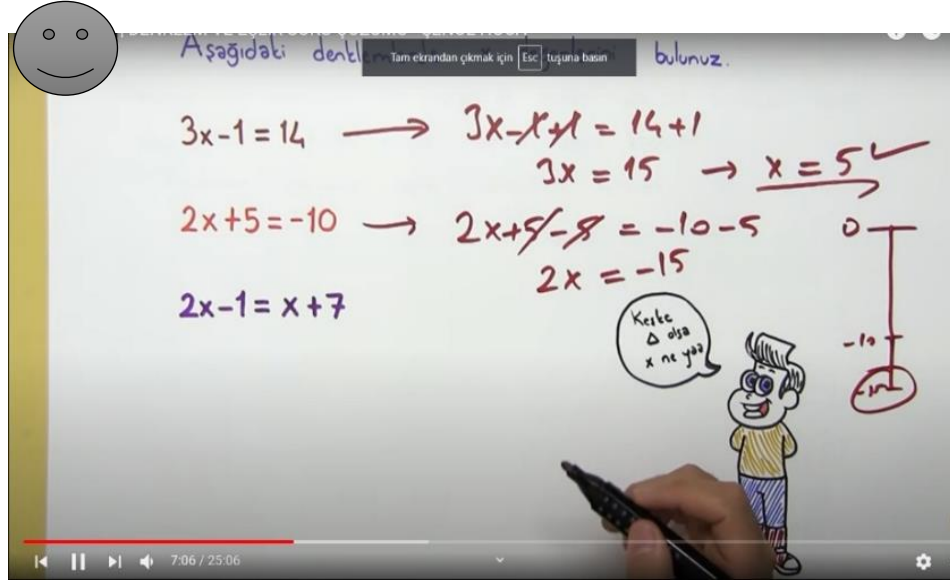 Aşağıdaki bulunuz.
Tam ekrandan çıkmak için Esc tuşuna basın
3x-1=14 → 3x-1+1 = 14+1
3x = 15 → x = 5 ✓
2x+5=-10 → 2x+5-5 = -10-5
2x = -15
2x-1= x+7
0
-10
-15
Keşke
Δ olsa
x ne yaa
7:06 / 25:06